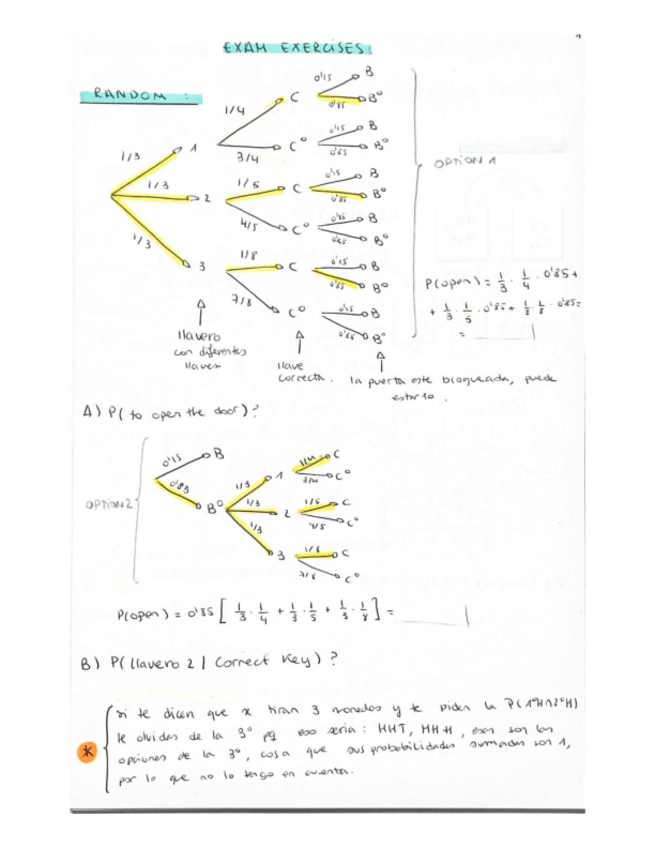 EXAM EXERCISES:
RANDOM :
1/3
1/3
1/3
1
2
3
1/4
3/4
1/5
4/5
1/8
7/8
C
Cº
C
Cº
C
Cº
0'15 B
0'85 Bº
0'15 B
0'85 Bº
0'15 B
0'85 Bº
0'15 B
0'85 Bº
0'15 B
0'85 Bº
0'15 B
0'85 Bº
OPTION 1
P(open) = 1/3 · 1/4 · 0'85 +
+ 1/3 · 1/5 · 0'85 + 1/3 · 1/8 · 0'85 =
=
llavero
con diferentes
llaves
llave
correcta.
la puerta este bloqueada, puede
estarlo.
A) P( to open the door)?
OPTION 2
0'15 B
0'85 Bº
1/3 1
1/3 2
1/3 3
1/4 C
3/4 Cº
1/5 C
4/5 Cº
1/8 C
7/8 Cº
P(open) = 0'85 [ 1/3 · 1/4 + 1/3 · 1/5 + 1/3 · 1/8 ] =
B) P( llavero 2 | Correct Key) ?
* si te dicen que x tiran 3 monedas y te piden la P(1ºH∩2ºH)
te olvidas de la 3º pq eso seria : HHT, HHH, esas son las
opciones de la 3º, cosa que sus probabilidades sumadas son 1,
por lo que no lo tengo en cuenta.